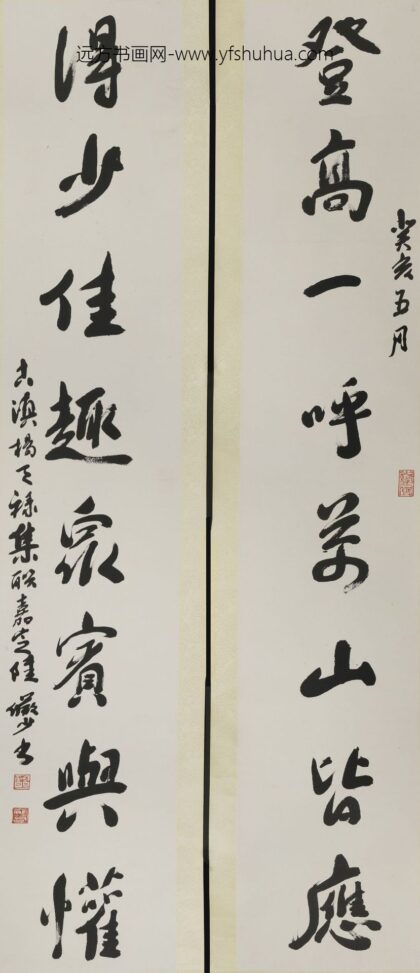 远方书画网-www.yfshuhua.com
癸亥五月
登高一呼万山皆應
得少佳趣眾賓與懽
古滇楊天祿集聯嘉定陸儼少書